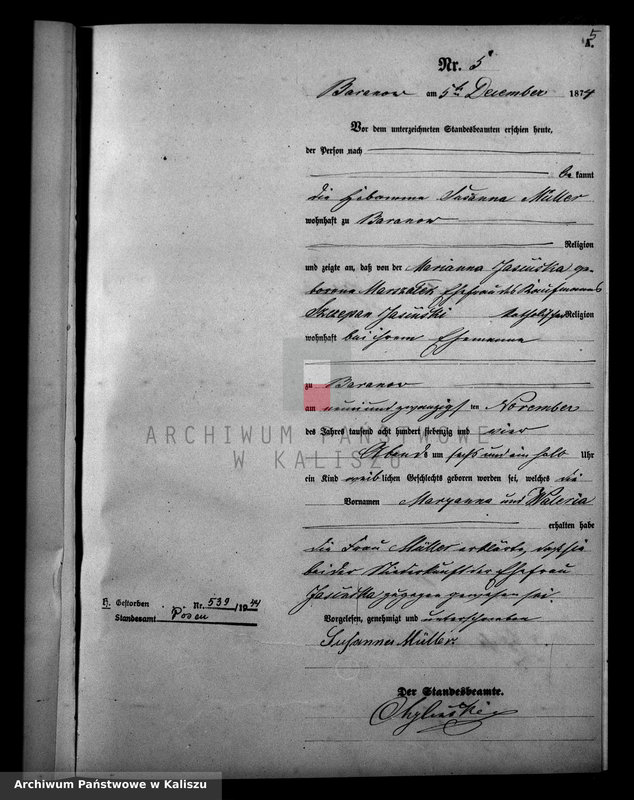 5
1.
Nr. 5
Baranow am 5ten December 1874
Vor dem unterzeichneten Standesbeamten erschien heute,
der Person nach
be kannt
die Hebamme Susanna Müller
wohnhaft zu Baranow
Religion
und zeigte an, daß von der Marianna Jasinska ge-
borene Marszalek Ehefrau des Kaufmanns
Szczepan Jasinski katholischer Religion
wohnhaft bei ihrem Ehemanne
zu Baranow
am neun und zwanzigsten November
des Jahres tausend acht hundert siebenzig und vier
Abends um sechs und ein halb Uhr
ein Kind weiblichen Geschlechts geboren worden sei, welches die
Vornamen Maryanna und Waleria
erhalten habe
die Frau Müller erklärte, daß sie
bei der Niederkunft der Ehefrau
Jasinska zugegen gewesen sei.
Vorgelesen, genehmigt und unterschrieben
Susanna Müller
Der Standesbeamte.
H. Gestorben Nr. 539/1944
Standesamt Posen
ARCHIWUM PAŃSTWOWE
W KALISZU
Archiwum Państwowe w Kaliszu